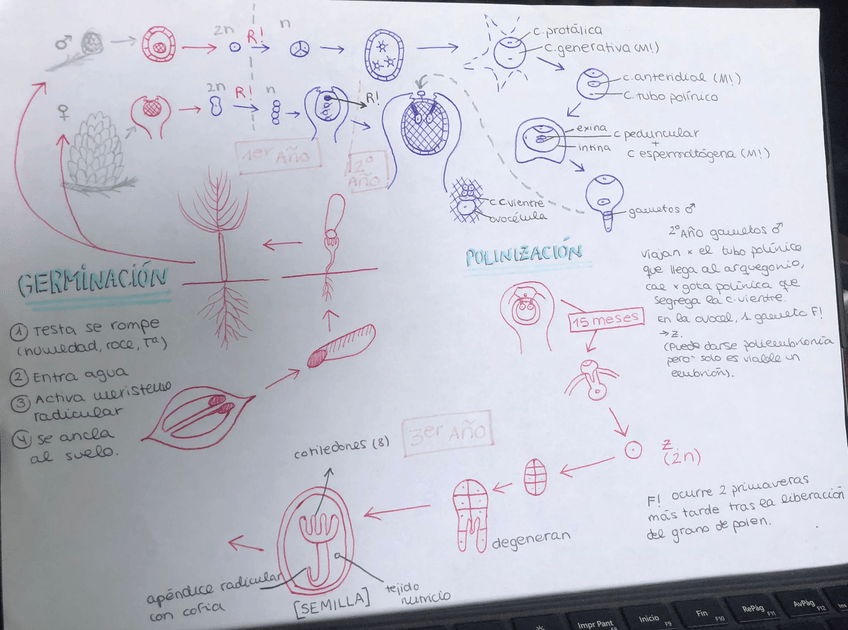 ♂
2n
R!
n
c. protálica
c. generativa (M!)
c. anteridial (M!)
c. tubo polínico
♀
2n
R!
n
R!
1er AÑO
2º AÑO
exina
intina
c peduncular
+
c espermatógena (M!)
gametos ♂
c.c vientre
ovocélula
POLINIZACIÓN
2º AÑO gametos ♂
viajan x el tubo polínico
que llega al arquegonio,
cae x gota polínica que
segrega la c. vientre.
En la ovocel, 1 gameto F!
→ Z.
(Puede darse poliembrionía
pero solo es viable un
embrión).
15 meses
Z
(2n)
F! ocurre 2 primaveras
más tarde tras la liberación
del grano de polen.
GERMINACIÓN
① Testa se rompe
(humedad, roce, Tª)
② Entra agua
③ Activa meristemo
radicular
④ Se ancla
al suelo.
3er AÑO
cotiledones (8)
degeneran
apéndice radicular
con cofia
[SEMILLA]
tejido
nutricio
Impr Pant
Inicio
F9
Fin
F10
RePág
F11
AvPág
F12